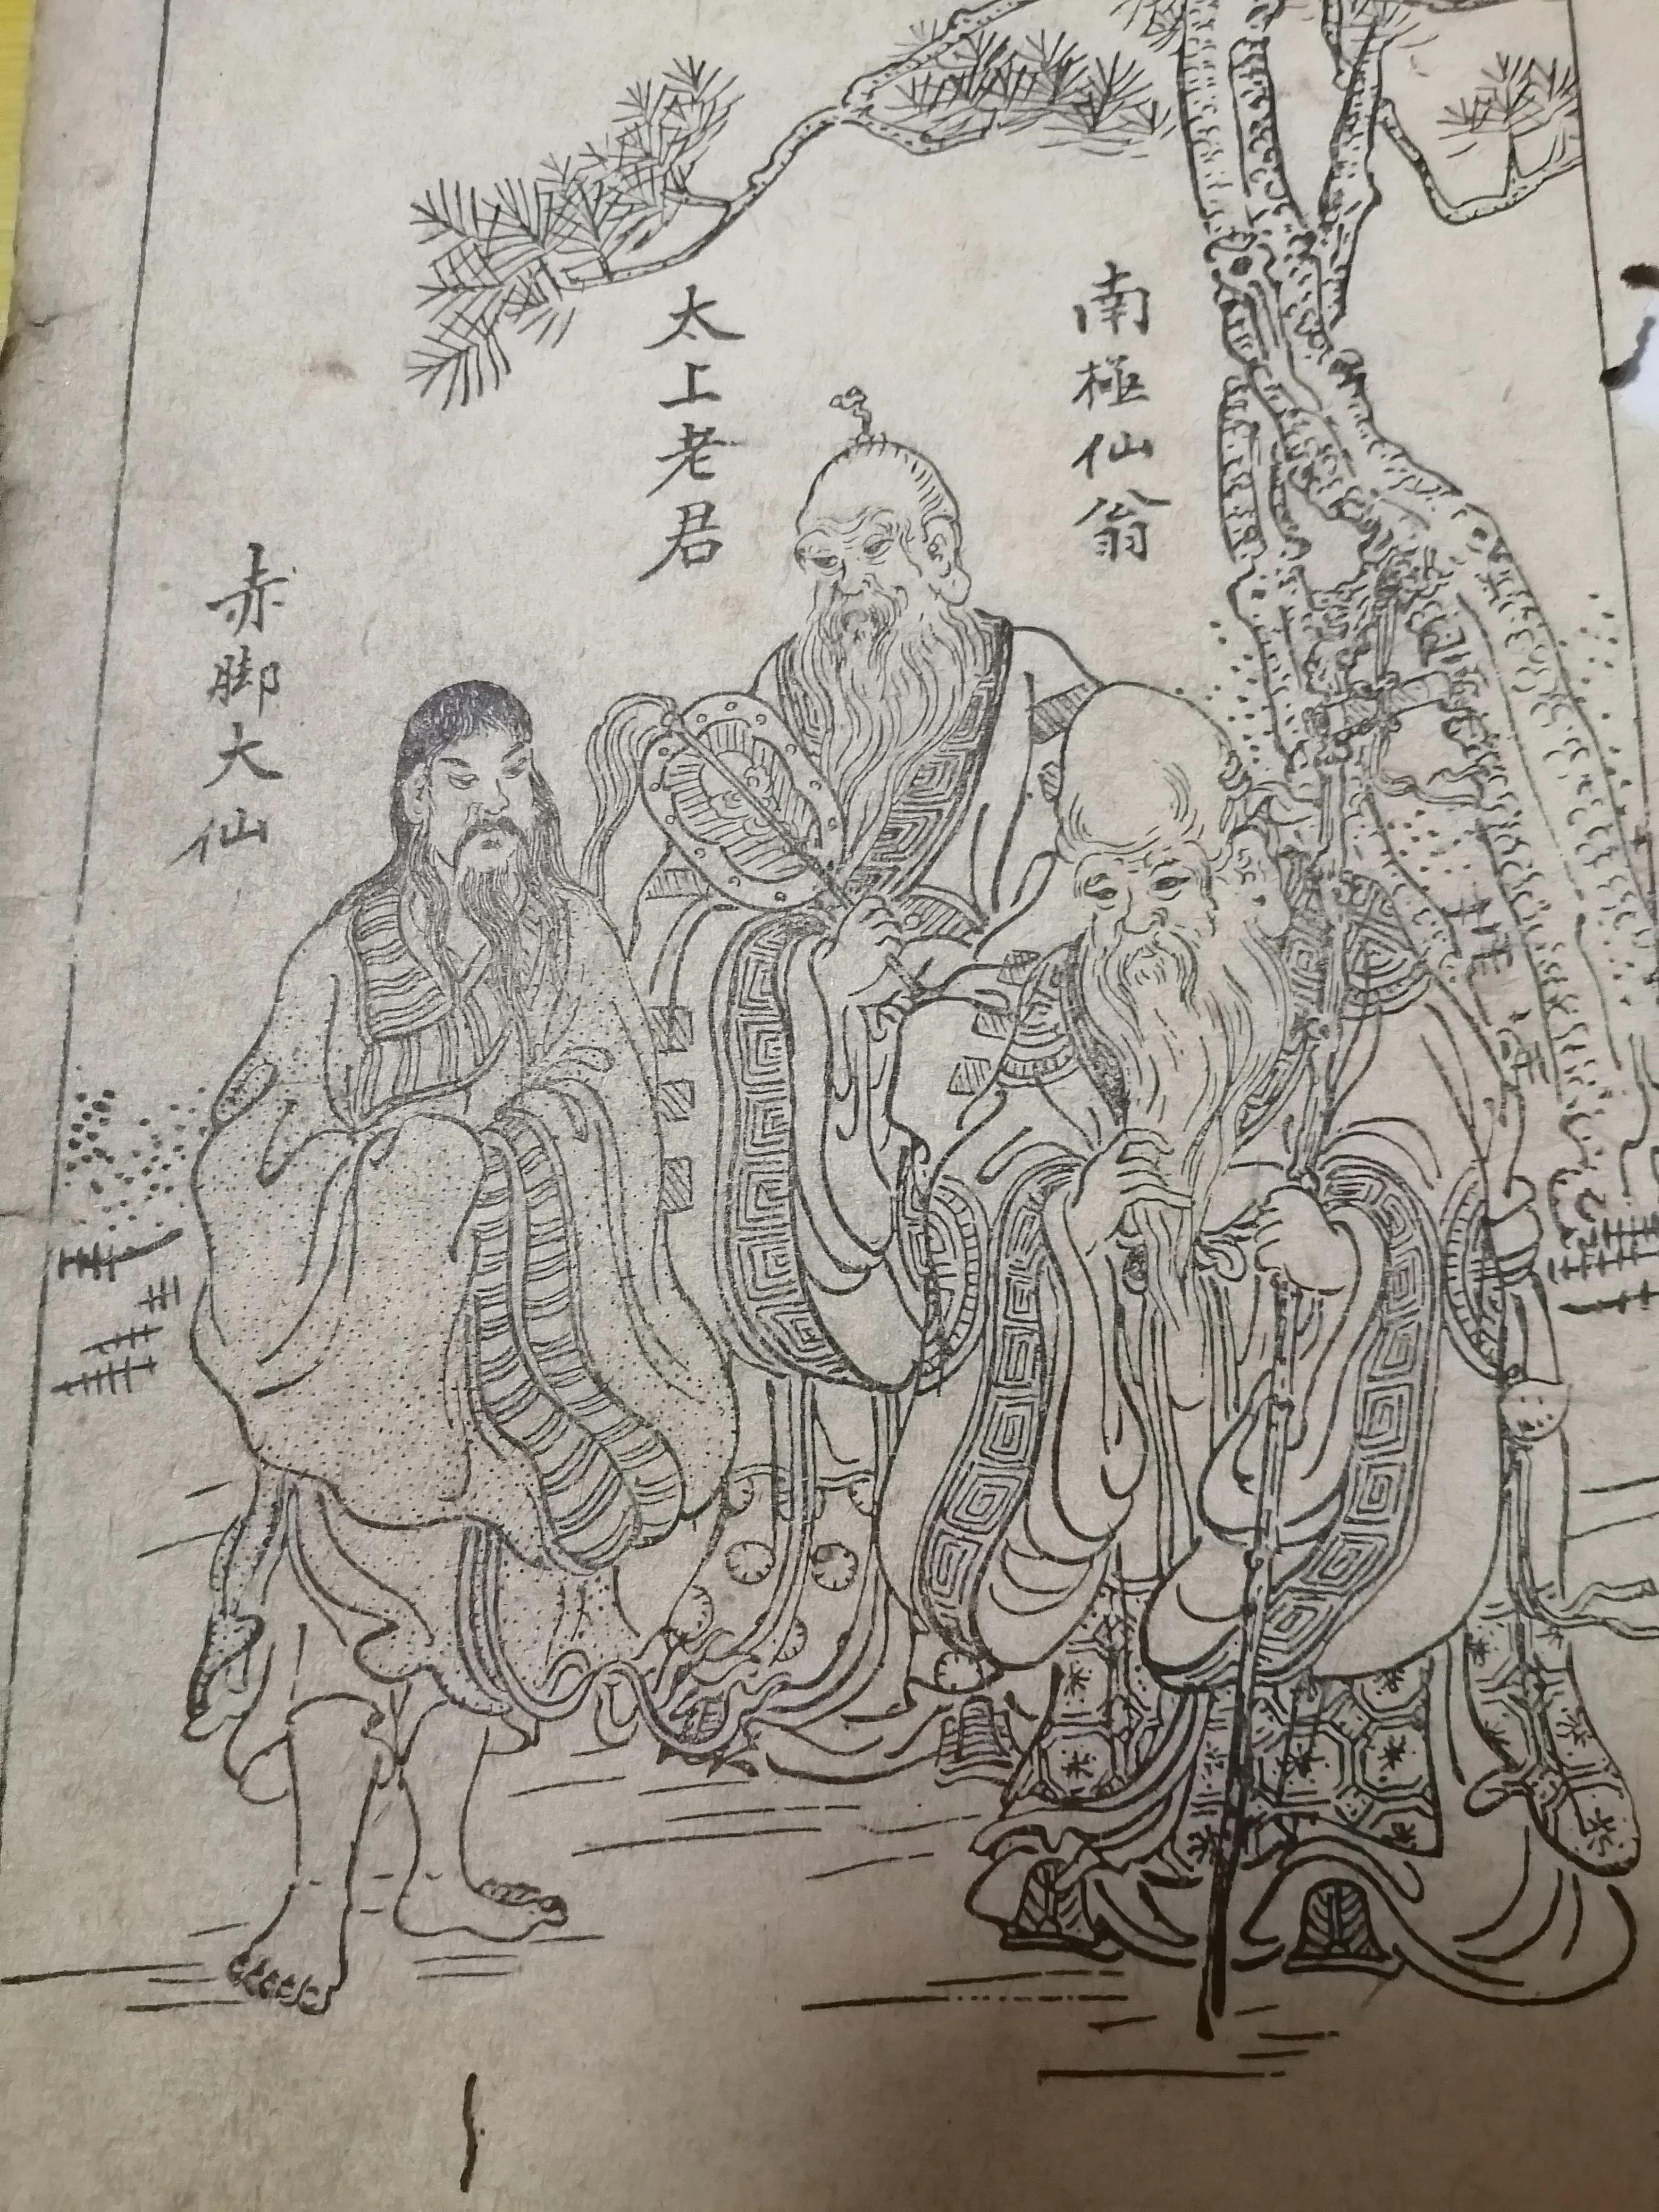 南極仙翁
太上老君
赤脚大仙